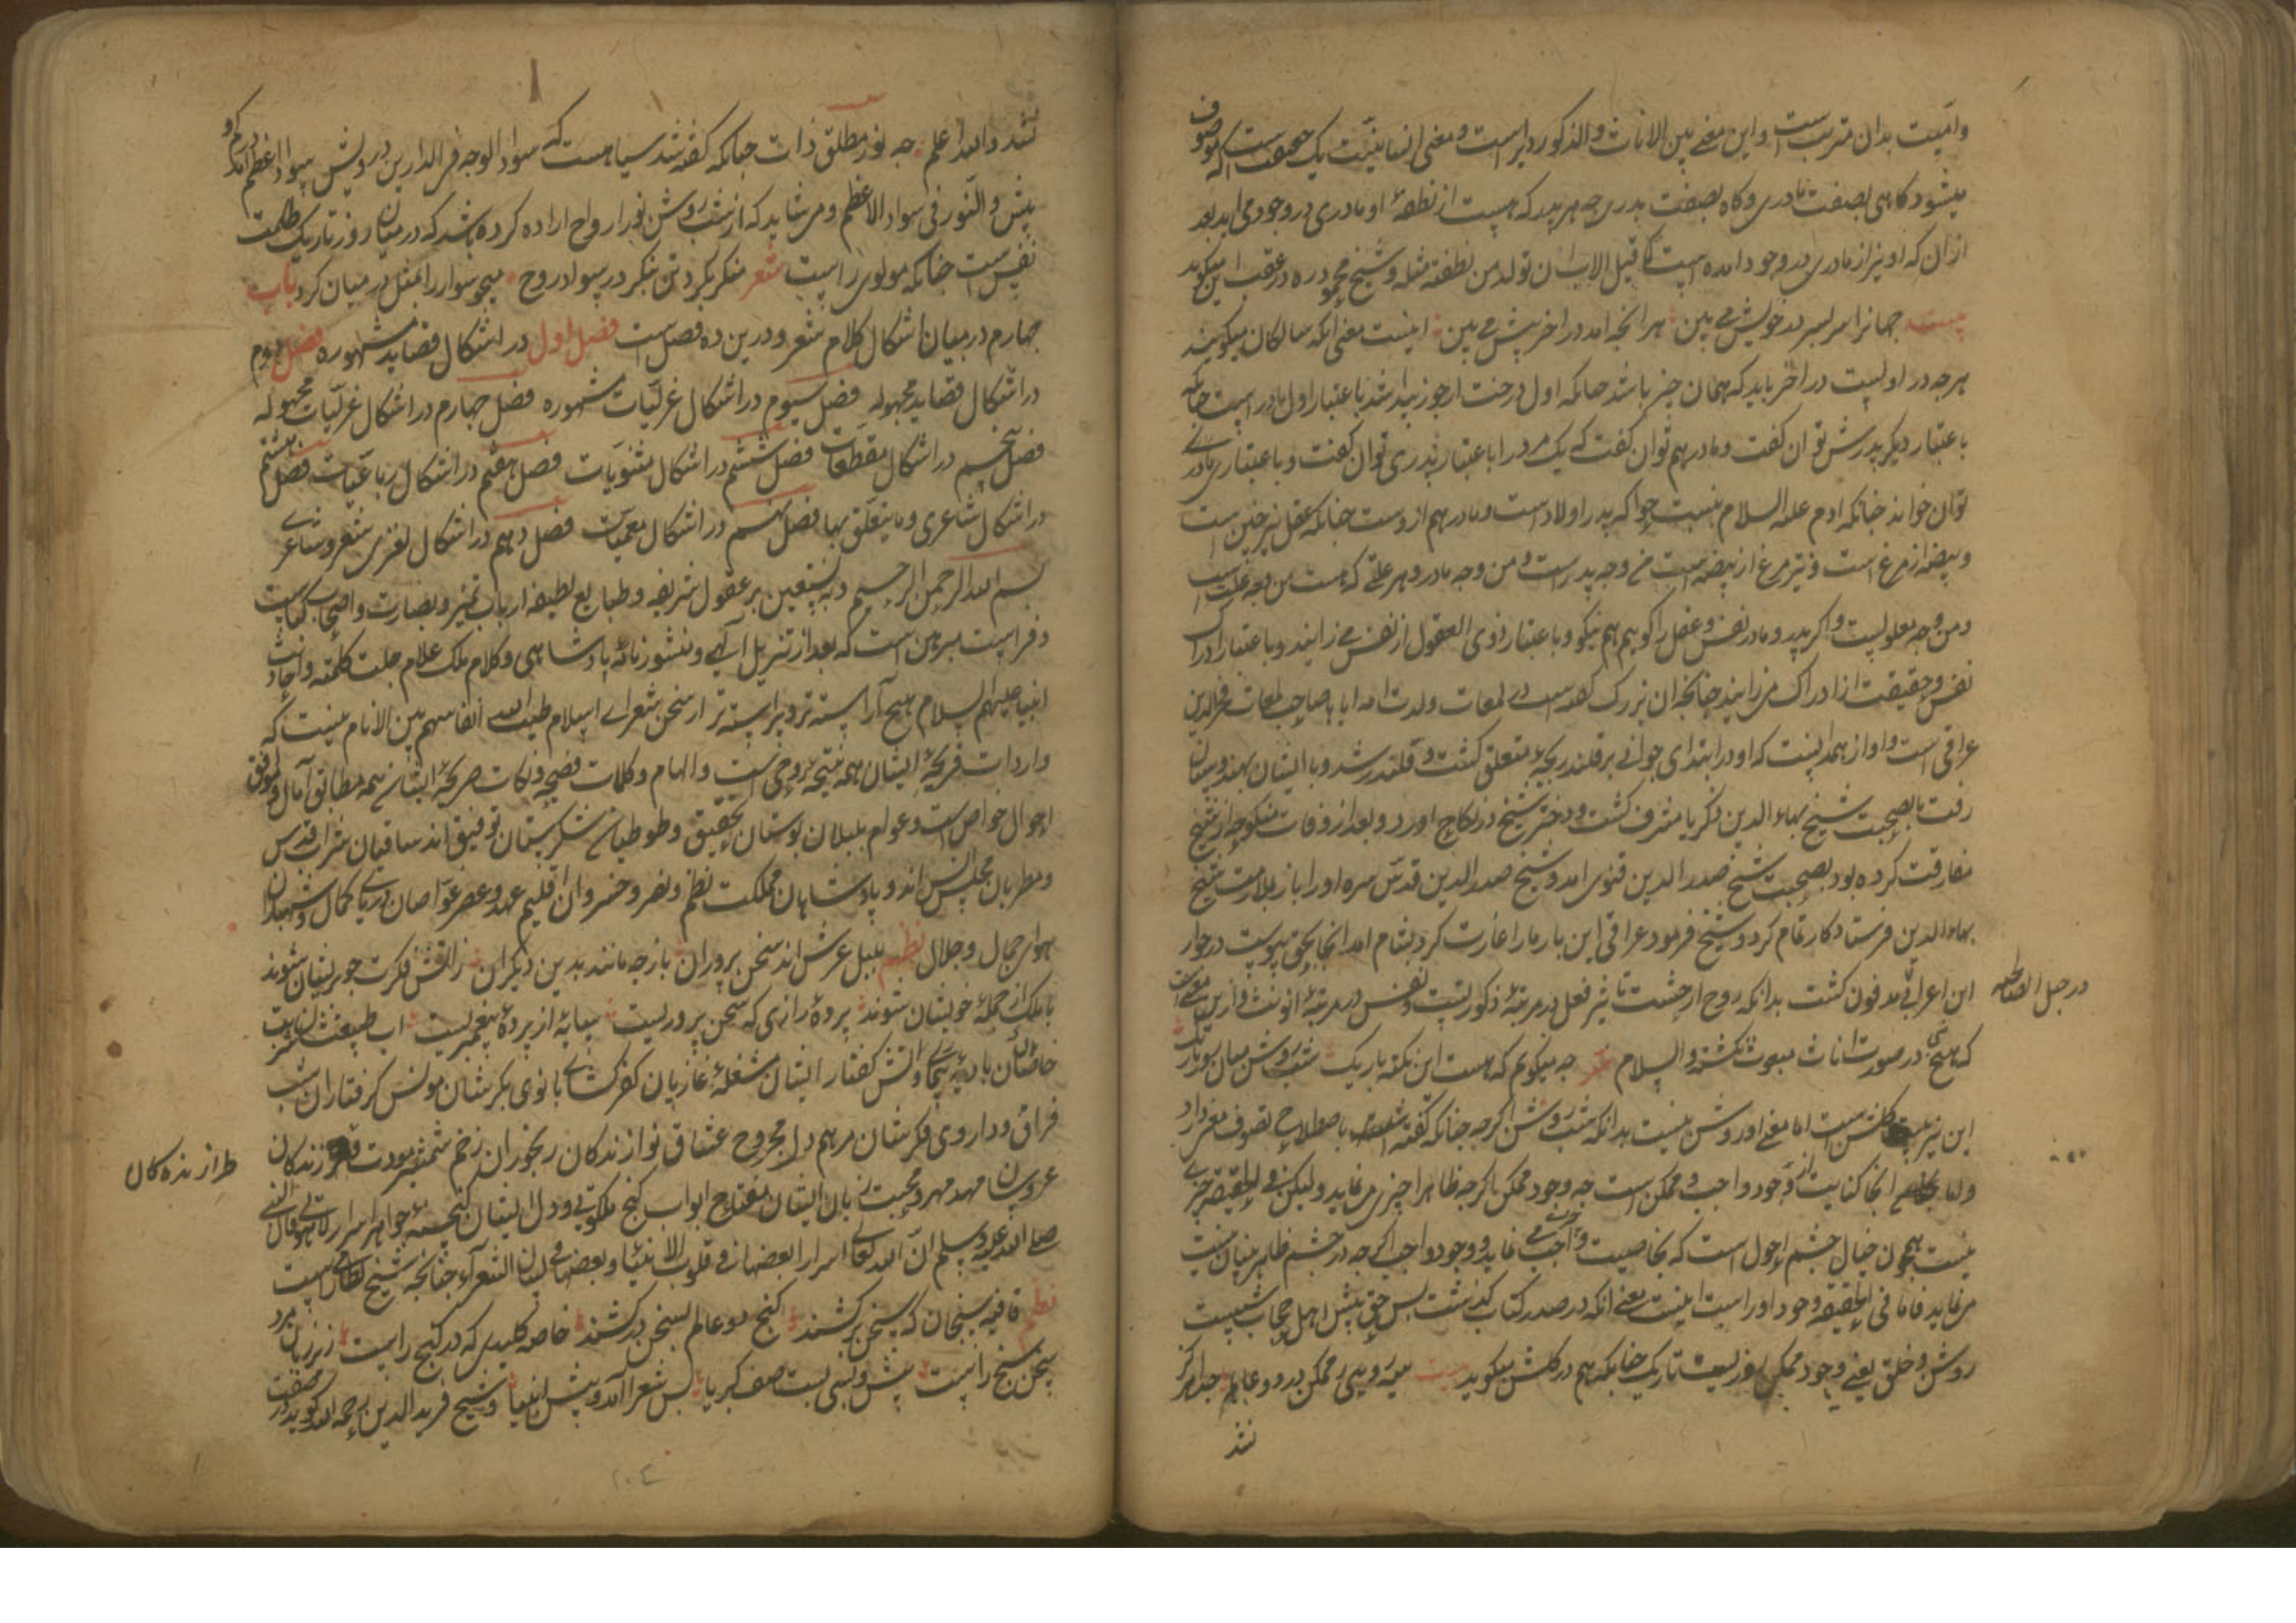 وامیت بدان مترتب است و این معنی بین الاناث والذکور دایر است و معنی انسانیت یک حقیقت است که موصوف
میشود کاهی بصفت مادری و کاه بصفت پدری چه هر پدر که هست از نطفهٔ او مادری در وجود می آید بعد
ازان که او نیز از مادری در وجود آمده است کما قیل الاب ان تولد من نطفته مثله و شیخ محمود ره در عقب این میکوید
بیت جهانرا سر بسر در خویش می بین هر انچه آمد در آخر پیش می بین اینست معنی آنکه سالکان میکویند
هر چه در اولست در آخر باید که همان چیز باشد چنانکه اول درخت از جوز پیدا شد باعتبار اول مادر است چنانکه
باعتبار دیگر پدرش توان کفت و مادر هم توان کفت که یک مرد را باعتبار پدری توان کفت و باعتباری مادری
توان خواند چنانکه آدم علیه السلام نسبت حوا که پدر اولاد است و مادر هم از وست چنانکه عقل نیز چنین است
و بیضه از مرغ است و نیز مرغ از بیضه است من وجه پدر است و من وجه مادر و هر علتی که هست من وجه علت است
و من وجه معلولست و اگر پدر و مادر نفس و عقل را کویم هم نیکو و باعتبار ذوی العقول از نفس می زایند و باعتبار ادراک
نفس و حقیقت از ادراک می زایند چنانچه آن بزرک کفته است در لمعات ولدت امه اباها صاحب لمعات فخرالدین
عراقی است و او از همدانست که او در ابتدای جوانی بر قلندر بچهٔ متعلق کشت و قلندر شد و با ایشان بهندوستان
رفت تا بصحبت شیخ بهاء الدین ذکریا مشرف کشت و دختر شیخ در نکاح آورد و بعد از وفات منکوحه از شیخ
مفارقت کرده بود بصحبت شیخ صدر الدین قنوی آمد و شیخ صدر الدین قدس سره او را باز بملازمت شیخ
بهاءالدین فرستاد کار تمام کرد و شیخ فرمود عراقی این بار ما را غارت کرد بشام آمد انجا بحق پیوست در جوار
ابن اعرابی مدفون کشت بدانکه روح از حیثیت تاثیر فعل در مرتبهٔ ذکورتست و نفس در مرتبهٔ انوثت و ازین معنی است
در جبل الصالحیه
که هیچ نبی در صورت اناث مبعوث نکشته والسلام شعر چه میکویم که هست این نکته باریک شب روشن میان روز تاریک
این نیز بیت کلشن است اما معنی او روشن نیست بدانکه شب روشن اکرچه چنانکه کفته اند باصطلاح تصوف معنی دارد
و اما انجا کنایت از وجود واجب و ممکن است چه وجود ممکن اکرچه ظاهرا چیزی می نماید ولیکن فی الحقیقه چیزی
نیست همچون خیال چشم احول است که بخاصیت واجب می نماید و وجود واجب اکرچه در چشم ظاهر بینان نیست
می نماید فاما فی الحقیقه وجود او راست اینست معنی آنکه در صدر کتاب کذشت پس حق پیش اهل حجاب شبیست
روشن و خلق یعنی وجود ممکن روزیست تاریک چنانکه هم در کلشن میکوید بیت سیه رویی ز ممکن در دو عالم جدا هرکز
نشد
نشد والله اعلم چه نور مطلق ذات چنانکه کفته شد سیاهست که سواد الوجه فی الدارین درویش سواد اعظم آمد بی کم و
بیش و النور فی سواد الاعظم و می شاید که از شب روشن نور ارواح اراده کرده باشد که در میان روز تاریک ظلمت
نفس است چنانکه مولوی راست شعر منکر بکرد تن بنکر در سواد روح همچو سوار را بمثل در میان کرد باب
چهارم در میان اشکال کلام شعر و درین ده فصل است فصل اول در اشکال قصاید مشهوره فصل دوم
در اشکال قصاید مجهوله فصل سیوم در اشکال غزلیات مشهوره فصل چهارم در اشکال غزلیات مجهوله
فصل پنجم در اشکال مقطعات فصل ششم در اشکال مثنویات فصل هفتم در اشکال رباعیات فصل هشتم
در اشکال شاعری و ما یتعلق بها فصل نهم در اشکال معمیات فصل دهم در اشکال لغزی شعر و شاعری
بسم الله الرحمن الرحیم و به نستعین بر عقول شریفه و طبایع لطیفه ارباب تمییز و بصارت و اصحاب کیاست
و فراست مبرهن است که بعد از تنزیل آلهی و منشور نامهٔ پادشاهی و کلام ملک علام جلت کلمته و احادیث
انبیا علیهم السلام هیچ آراسته تر و پیراسته تر از سخن شعرای اسلام طیب الله انفاسهم بین الانام نیست که
واردات قریحهٔ ایشان همه نتیجهٔ وحی است و الهام و کلمات فصیحه و نکات صریحهٔ ایشان همه مطابق آمال و موافق
احوال خواص است و عوام بلبلان بوستان تحقیق و طوطیان شکرستان توفیق اند ساقیان شراب قدس
و مطربان مجلس انس اند و پادشاهان مملکت نظم و نثر و خسروان اقلیم عهد و عصر غواصان دریای کمال و شهبازان
هوای جمال و جلال نظم بلبل عرش اند سخن پروران باز چه مانند بدین دیکران زاتش فکرت چو پریشان شوند
با ملک از جملهٔ خویشان شوند پردهٔ رازی که سخن پروریست سایهٔ از پردهٔ پیغمبریست آب طبیعتشان
خاصان بادیهٔ و آتش کفتار ایشان مشغلهٔ غازیان کفر کشای بانوی بکرشان مونس کرفتاران شب
فراق و داروی فکرشان مرهم دل مجروح عشاق نوازندکان رنجوران زخم شمشیر مودت طرازندکان
طرازنده کان
عروسان مهد مهر و محبت زبان ایشان مفتاح ابواب کنج ملکوتی و دل ایشان کنجینهٔ جواهر اسرار لاهوتی قال النبی
صلی الله علیه وسلم ان الله تعالی اسرارا بعضها فی قلوب الانبیا و بعضها فی لسان الشعرآء چنانچه شیخ نظامی است
نظم قافیه سنجان که سخن برکشند کنج دو عالم بسخن درکشند خاصه کلیدی که در کنج راست زیر زبان مرد
سخن سنج راست پیش و پسی بست صف کبریا پس شعرا آمد و پیش انبیا و شیخ فرید الدین رحمه الله کوید در صفت
۱۰۴